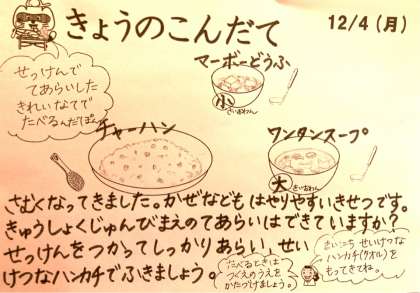 きょうのこんだて
12/4（月）
マーボーどうふ
小
せっけんで
てあらいした
きれいなてで
たべるんだぽん
チャーハン
ワンタンスープ
大
さむくなってきました。かぜなどもはやりやすいきせつです。
きゅうしょくじゅんびまえのてあらいはできていますか？
せっけんをつかってしっかりあらい、せい
けつなハンカチでふきましょう。
たべるときは
つくえのうえを
かたづけましょう。
まいにち せいけつな
ハンカチ(タオル)を
もってきてね。